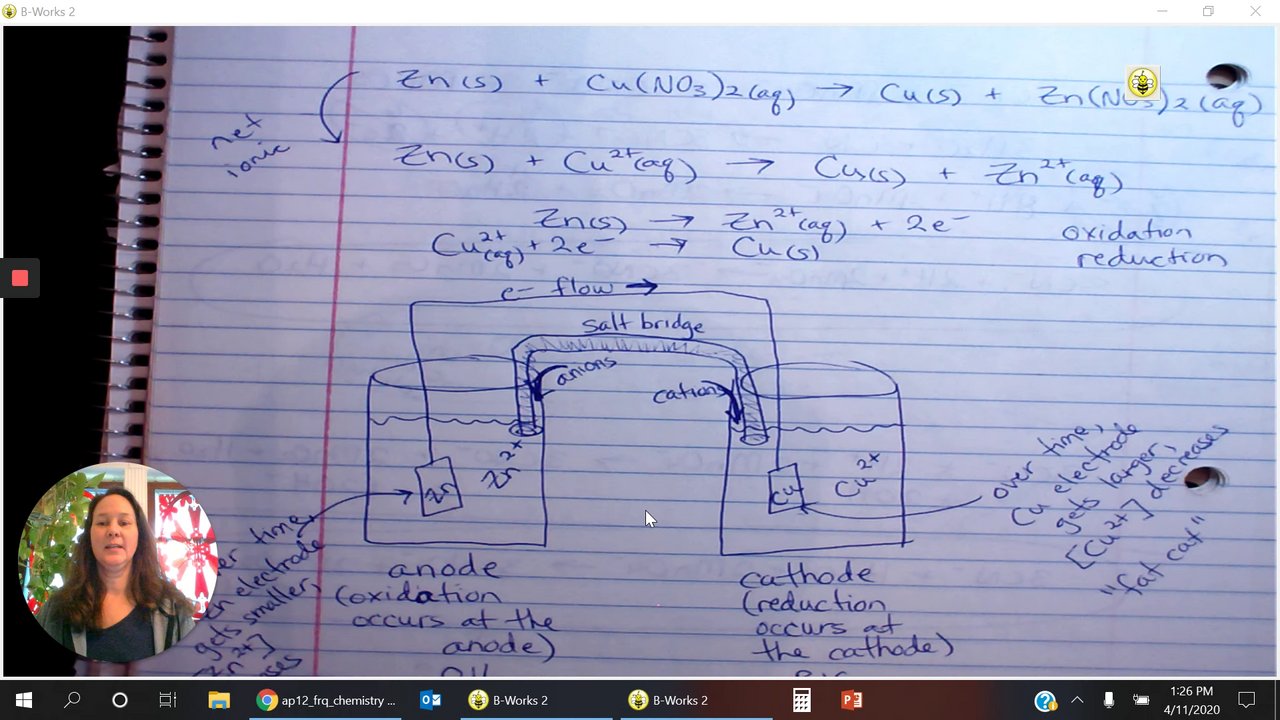 B-Works 2
Zn(s) + Cu(NO3)2(aq) → Cu(s) + Zn(NO3)2(aq)
net
ionic
Zn(s) + Cu2+(aq) → Cu(s) + Zn2+(aq)
Zn(s) → Zn2+(aq) + 2e- oxidation
Cu2+(aq) + 2e- → Cu(s) reduction
e- flow →
salt bridge
anions
cations
Zn Zn2+
Cu Cu2+
over time,
Cu electrode
gets larger,
[Cu2+] decreases
"fat cat"
time,
electrode
gets smaller,
anode
(oxidation
occurs at the
anode)
cathode
(reduction
occurs at
the cathode)
ap12_frq_chemistry ...
B-Works 2
B-Works 2
1:26 PM
4/11/2020